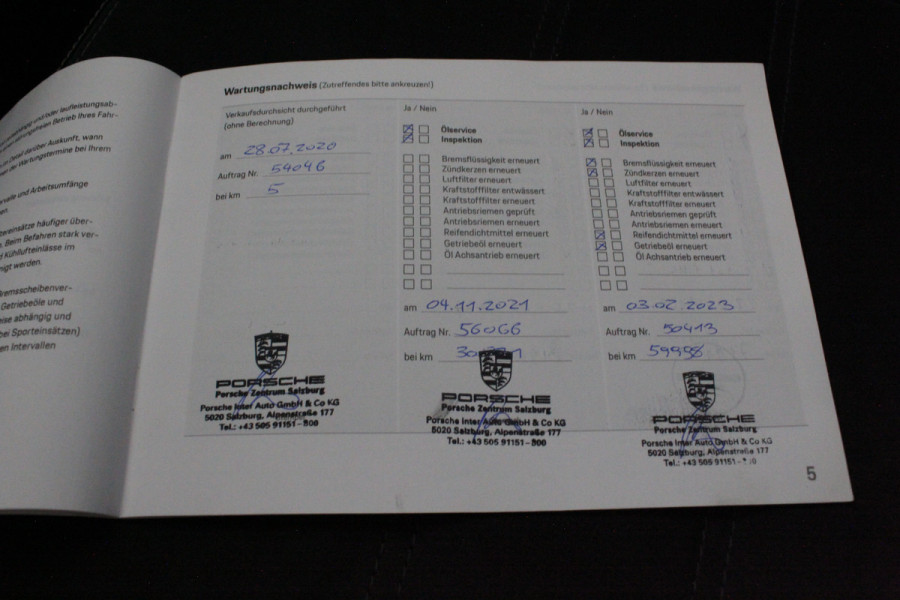 und/oder laufleistungsab-
Betrieb Ihres Fahr-
Detail darüber Auskunft, wann
der Wartungstermine bei Ihrem
und Arbeitsumfänge
einsätze häufiger über-
Beim Befahren stark ver-
Kühllufteinlässe im
werden.
Bremsscheibenver-
Getriebeöle und
abhängig und
bei Sporteinsätzen)
Intervallen
Wartungsnachweis (Zutreffendes bitte ankreuzen!)
Verkaufsdurchsicht durchgeführt
(ohne Berechnung)
am 28.07.2020
Auftrag Nr. 54046
bei km 5
PORSCHE
Porsche Zentrum Salzburg
Porsche Inter Auto GmbH & Co KG
5020 Salzburg, Alpenstraße 177
Tel.: +43 505 91151 - 300
Ja / Nein
Ölservice
Inspektion
Bremsflüssigkeit erneuert
Zündkerzen erneuert
Luftfilter erneuert
Kraftstofffilter entwässert
Kraftstofffilter erneuert
Antriebsriemen geprüft
Antriebsriemen erneuert
Reifendichtmittel erneuert
Getriebeöl erneuert
Öl Achsantrieb erneuert
am 04.11.2021
Auftrag Nr. 56066
bei km
PORSCHE
Porsche Zentrum Salzburg
Porsche Inter Auto GmbH & Co KG
5020 Salzburg, Alpenstraße 177
Tel.: +43 505 91151 - 300
Ja / Nein
Ölservice
Inspektion
Bremsflüssigkeit erneuert
Zündkerzen erneuert
Luftfilter erneuert
Kraftstofffilter entwässert
Kraftstofffilter erneuert
Antriebsriemen geprüft
Antriebsriemen erneuert
Reifendichtmittel erneuert
Getriebeöl erneuert
Öl Achsantrieb erneuert
am 03.02.2023
Auftrag Nr. 50413
bei km 59998
PORSCHE
Porsche Zentrum Salzburg
Porsche Inter Auto GmbH & Co KG
5020 Salzburg, Alpenstraße 177
Tel.: +43 505 91151 -
5